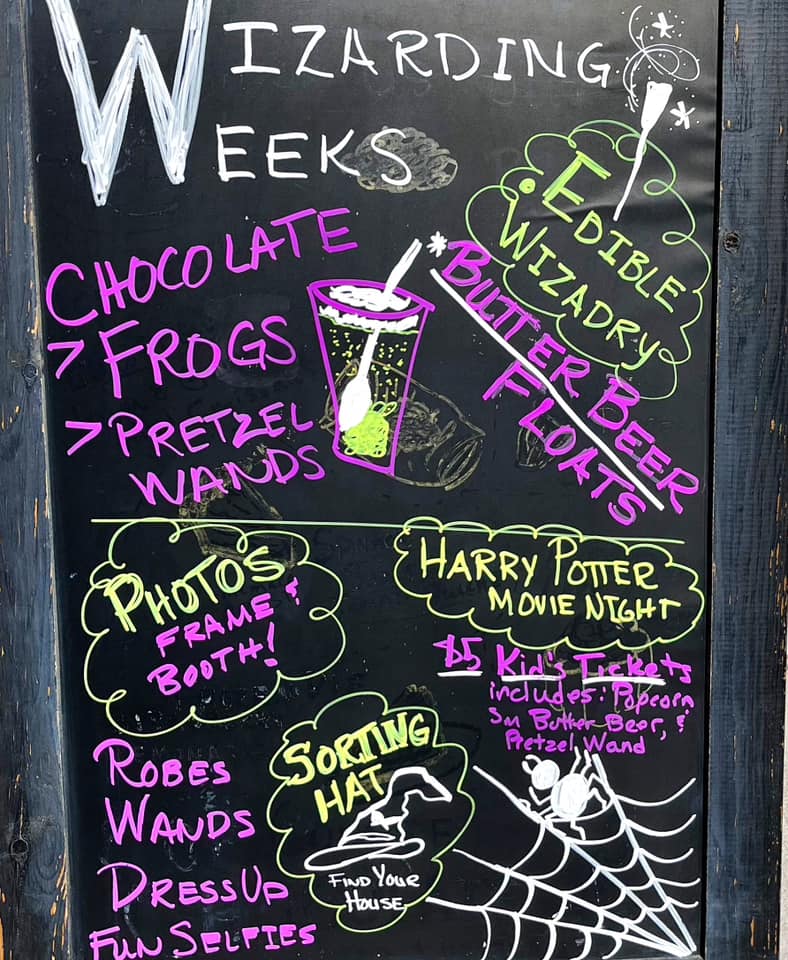 WIZARDING
WEEKS
EDIBLE
WIZADRY
CHOCOLATE
> FROGS
> PRETZEL
WANDS
*BUTTER BEER
FLOATS
PHOTOS
FRAME &
BOOTH!
HARRY POTTER
MOVIE NIGHT
$5 Kid's Tickets
includes: Popcorn
Sm Butter Beer, &
Pretzel Wand
SORTING
HAT
FIND YOUR
HOUSE
ROBES
WANDS
DRESS UP
FUN SELFIES